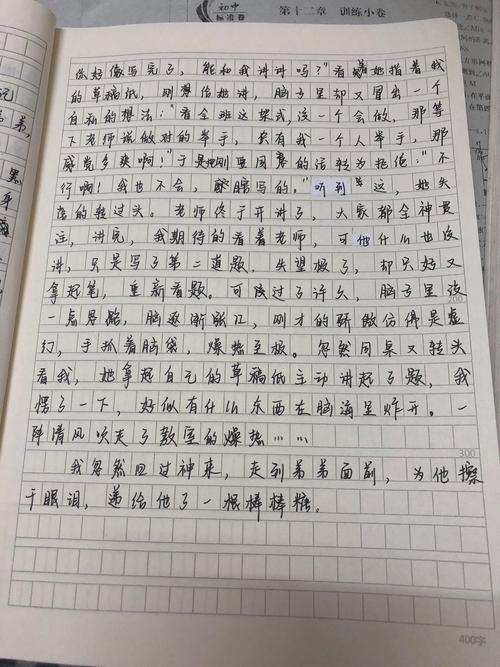 初中
标准卷
第十二章 训练小卷
你好像写完了，能和我讲讲吗？"看着她指着我
的草稿纸，刚想给她讲，脑子里却又冒出一个
自私的想法："看全班这架式，该一个会做，那等
下老师说做对的举手，只有我一个人举手，那
感觉多爽啊！"于是把刚要回答的话转为拒绝："不
行啊！我也不会，瞎写的。"听到这，她失
落的转过头。老师终于开讲了，大家都全神贯
注，讲完，我期待的看着老师，可他什么也没
讲，只是写了第二道题，失望极了，却只好又
拿起笔，重新看题。可该过了许久，脑子里没
一点思路，脑逐渐张江，刚才的骄傲仿佛是虚
幻，手抓着脑袋，燥热至极。忽然同桌又转头
看我，她拿起自己的草稿纸主动讲起了题，我
愣了一下，好似有什么东西在脑海里炸开。一
阵清风吹走了教室的燥热……
200
300
我忽然回过神来，走到弟弟面前，为他擦
干眼泪，递给他了一根棒棒糖。
400字